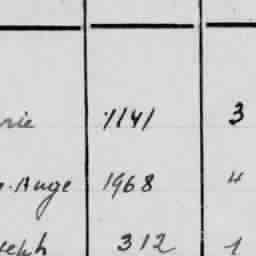 rie 1141 3
. Ange 1968 4
seph 312 1